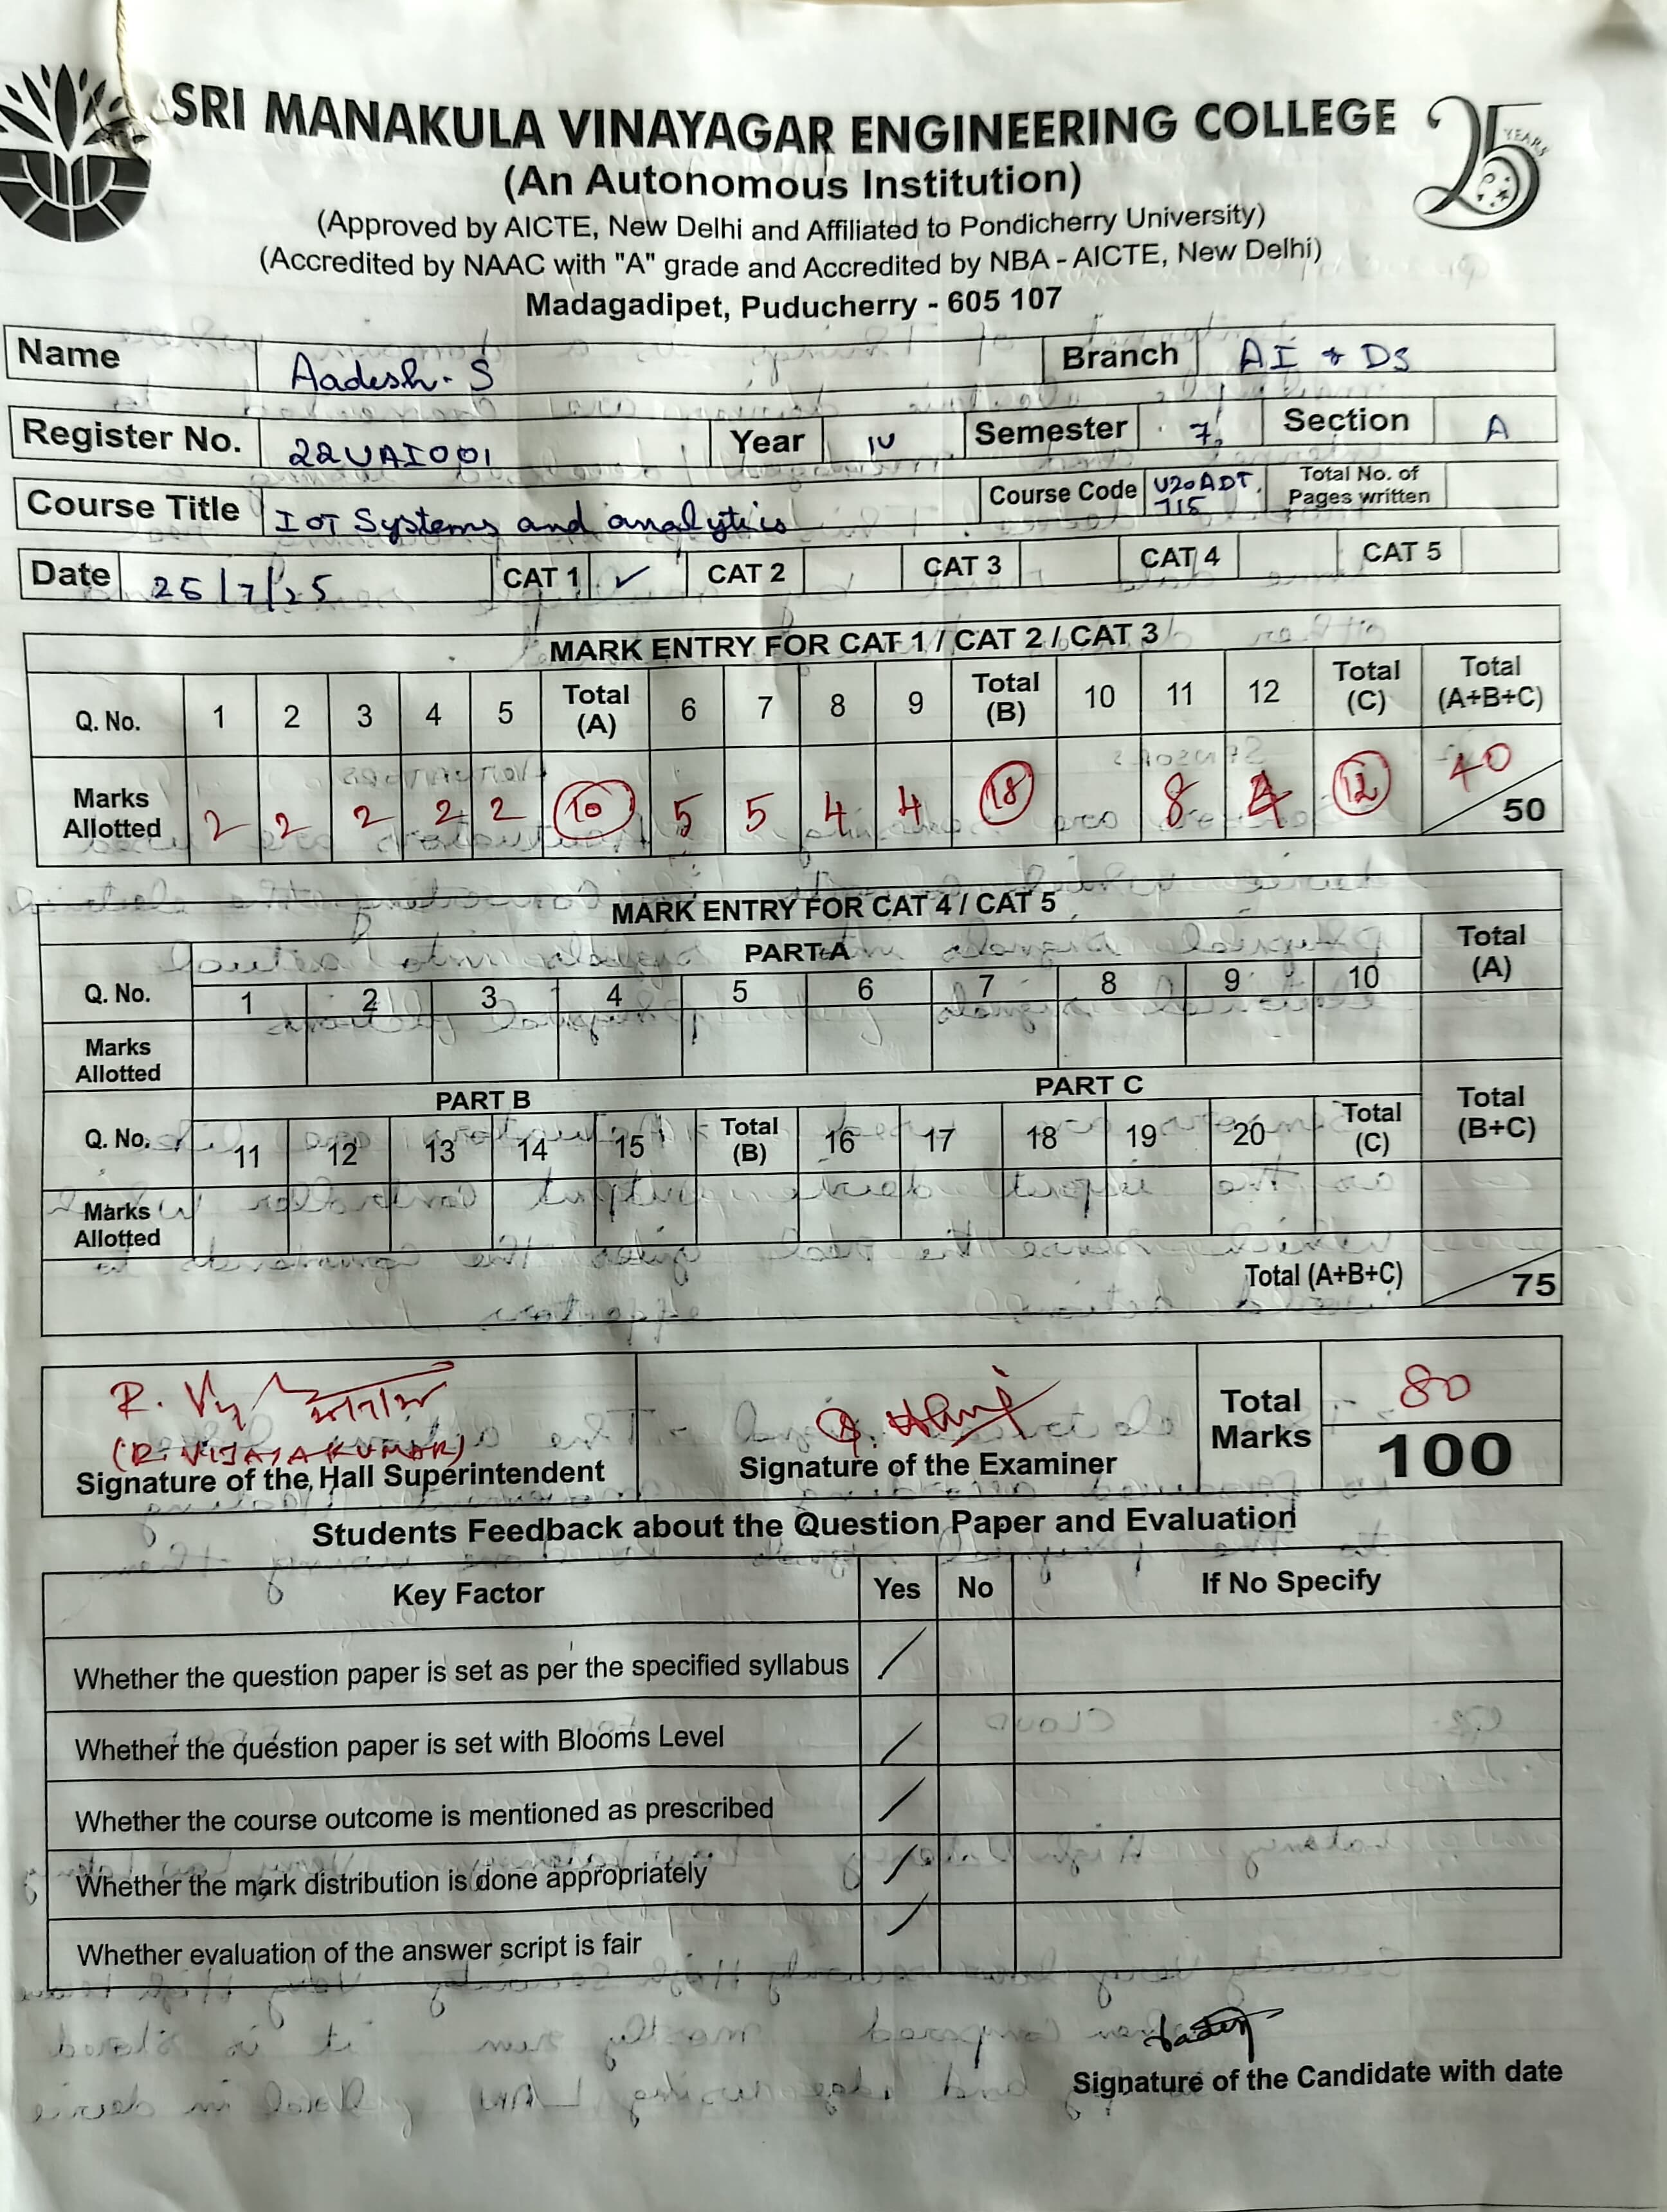 SRI MANAKULA VINAYAGAR ENGINEERING COLLEGE
25 YEARS
(An Autonomous Institution)
(Approved by AICTE, New Delhi and Affiliated to Pondicherry University)
(Accredited by NAAC with "A" grade and Accredited by NBA - AICTE, New Delhi)
Madagadipet, Puducherry - 605 107
Name Aadesh. S Branch AI & DS
Register No. 22UAI001 Year IV Semester 7 Section A
Course Title IoT Systems and analytics Course Code U20ADT 715 Total No. of Pages written
Date 25/7/25 CAT 1 ✓ CAT 2 CAT 3 CAT 4 CAT 5
MARK ENTRY FOR CAT 1 / CAT 2 / CAT 3
Q. No. 1 2 3 4 5 Total (A) 6 7 8 9 Total (B) 10 11 12 Total (C) Total (A+B+C)
Marks Allotted 2 2 2 2 2 10 5 5 4 4 18 8 4 12 40 / 50
MARK ENTRY FOR CAT 4 / CAT 5
PART-A Total (A)
Q. No. 1 2 3 4 5 6 7 8 9 10
Marks Allotted
PART B PART C Total (B+C)
Q. No. 11 12 13 14 15 Total (B) 16 17 18 19 20 Total (C)
Marks Allotted
Total (A+B+C) / 75
R. (R. VIJAYAKUMAR)
Signature of the Hall Superintendent Signature of the Examiner Total Marks 80 100
Students Feedback about the Question Paper and Evaluation
Key Factor Yes No If No Specify
Whether the question paper is set as per the specified syllabus
Whether the question paper is set with Blooms Level
Whether the course outcome is mentioned as prescribed
Whether the mark distribution is done appropriately
Whether evaluation of the answer script is fair
Signature of the Candidate with date